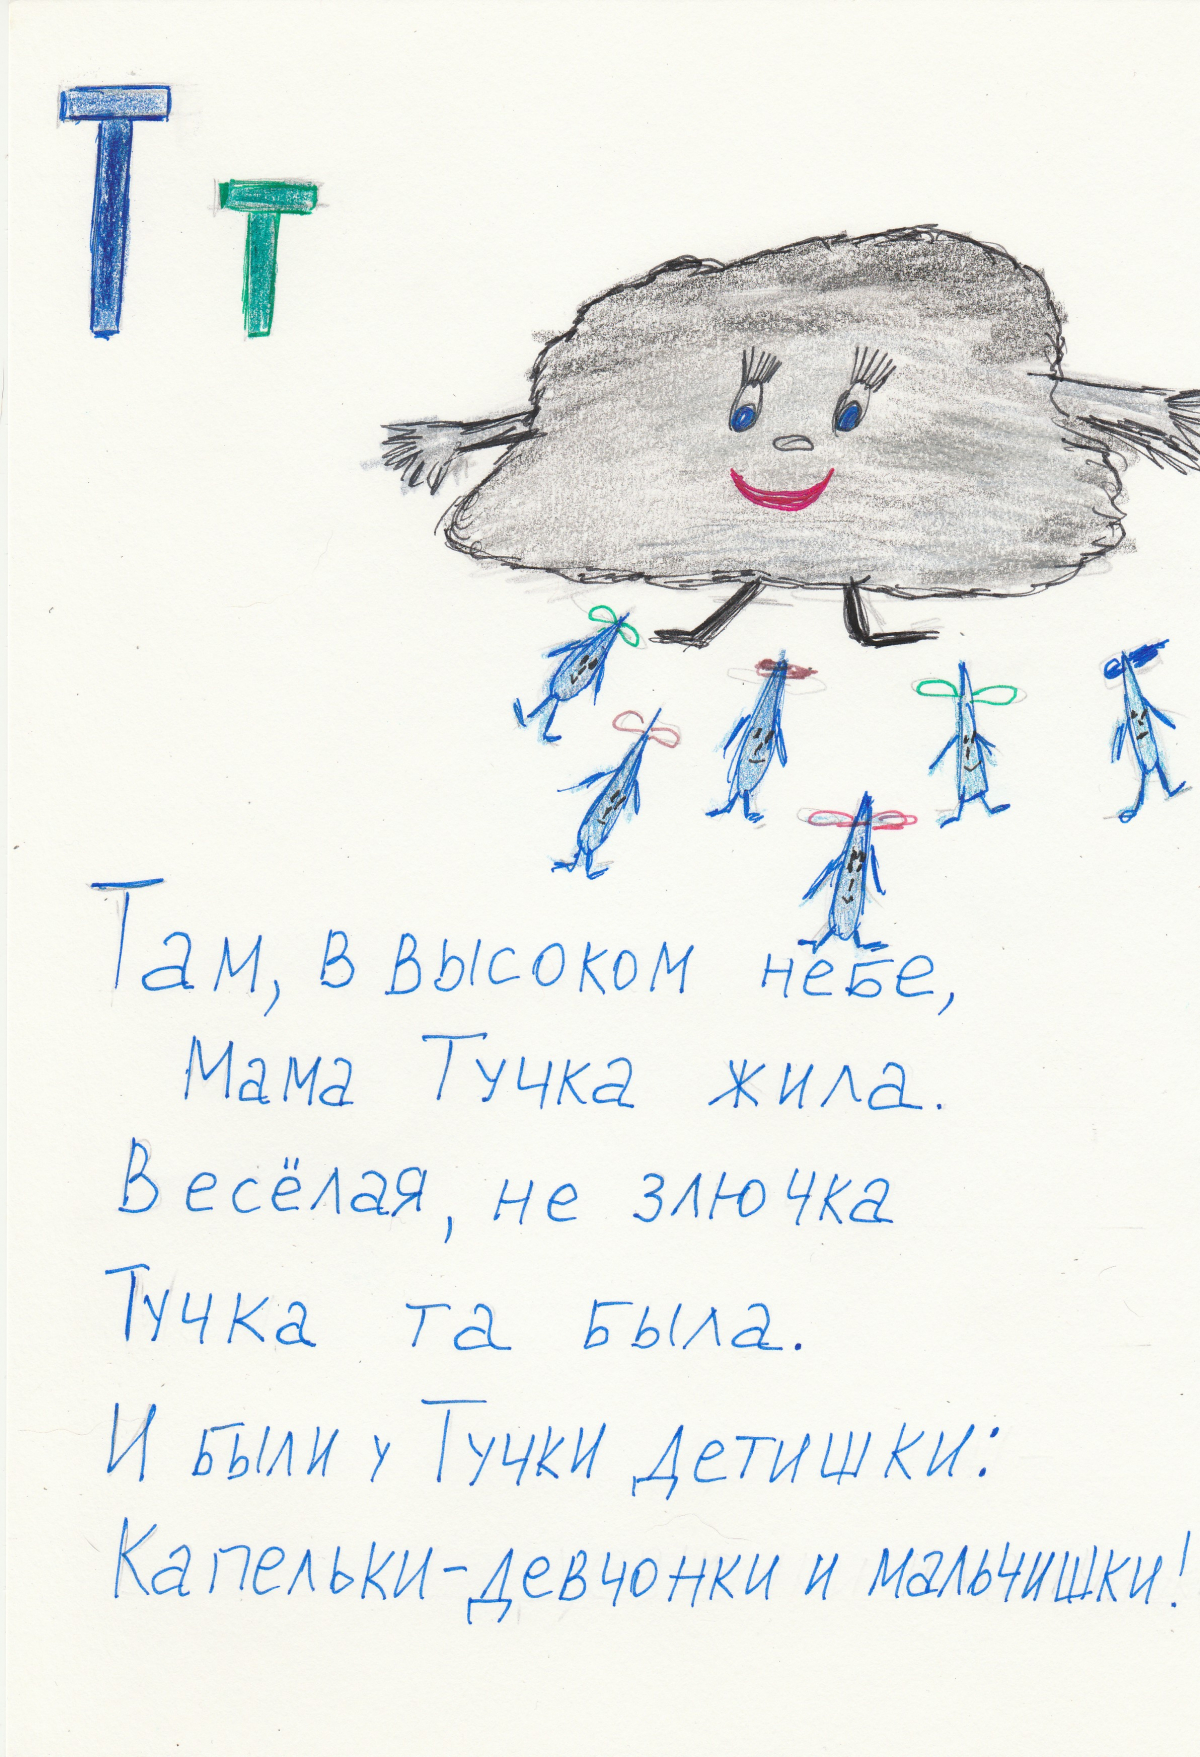 Т т
Там, в высоком небе,
Мама Тучка жила.
Весёлая, не злючка
Тучка та была.
И были у Тучки детишки:
Капельки-девчонки и мальчишки!